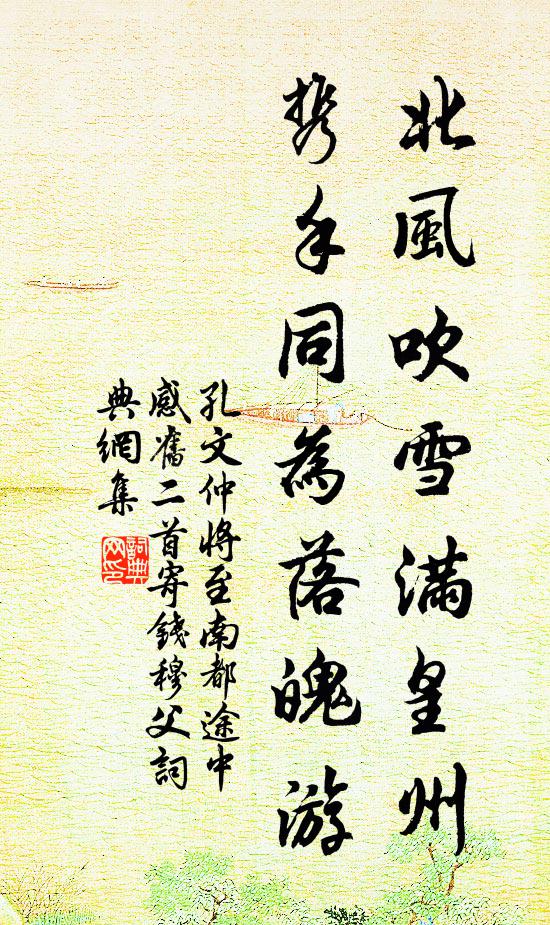 北風吹雪滿皇州
携手同為落魄游
孔文仲將至南都途中
感舊二首寄錢穆父詞
典網集
詞典網印